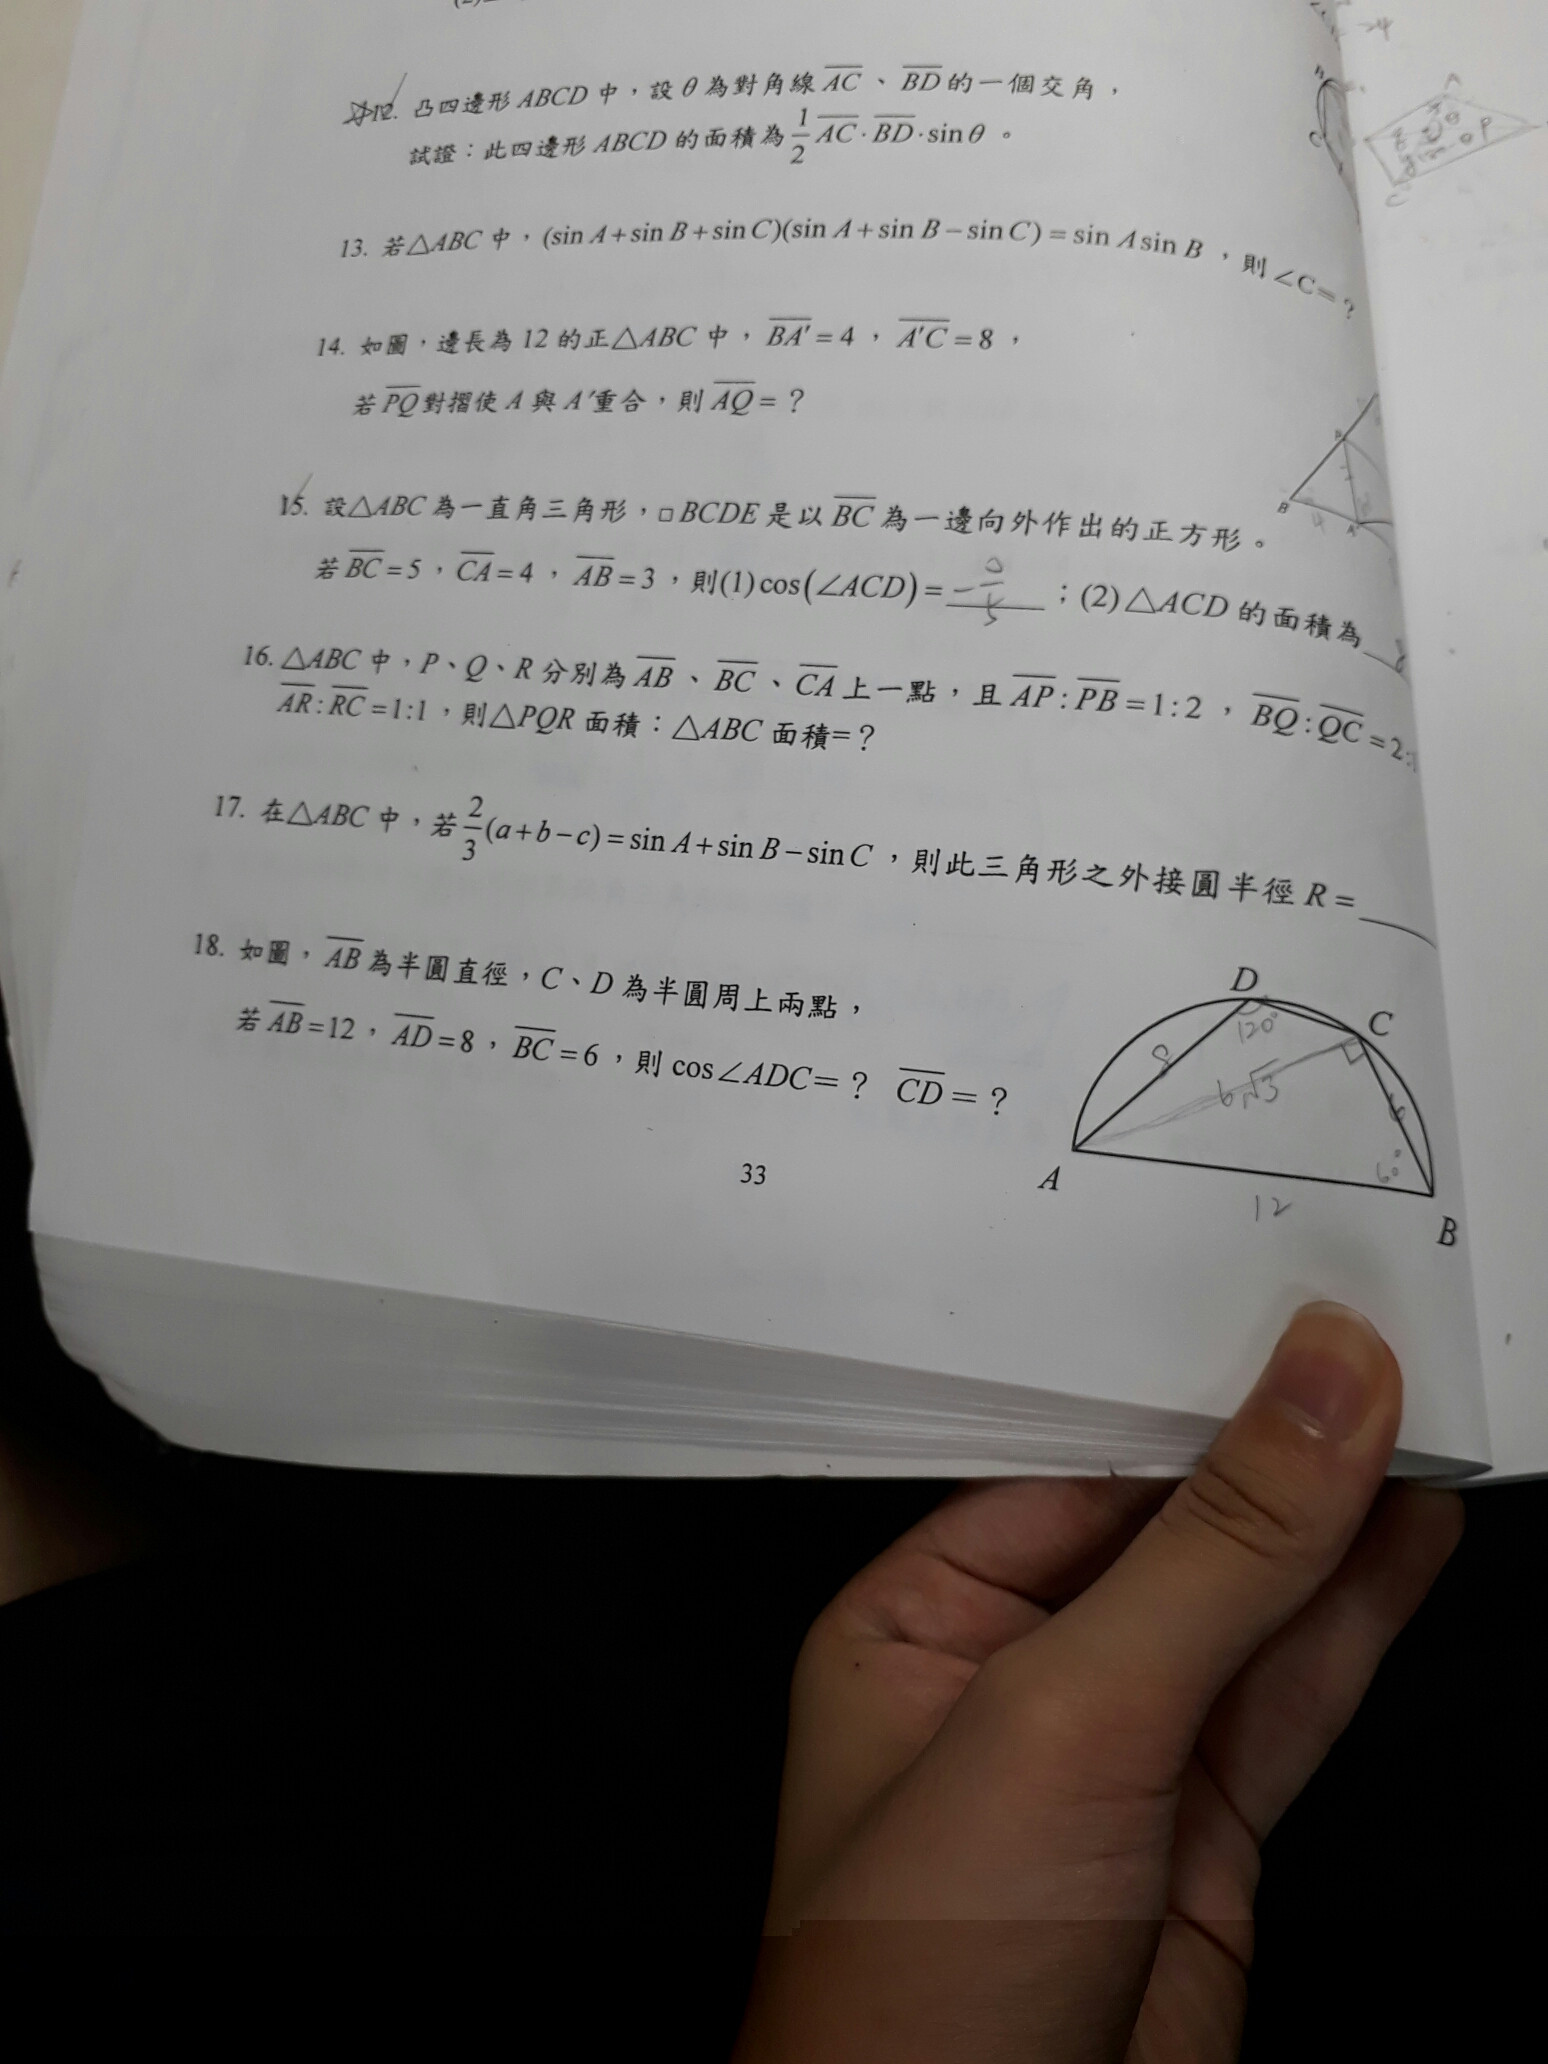 12. 凸四邊形 ABCD 中，設 θ 為對角線 AC、BD 的一個交角，
試證：此四邊形 ABCD 的面積為 1/2 AC·BD·sinθ。
13. 若△ABC 中，(sin A+sin B+sin C)(sin A+sin B−sin C)=sin A sin B，則∠C=?
14. 如圖，邊長為 12 的正△ABC 中，BA′=4，A′C=8，
若 PQ 對摺使 A 與 A′重合，則 AQ=？
B 4 A'
15. 設△ABC 為一直角三角形，□BCDE 是以 BC 為一邊向外作出的正方形。
若 BC=5，CA=4，AB=3，則(1)cos(∠ACD)= ；(2)△ACD 的面積為
16. △ABC 中，P、Q、R 分別為 AB、BC、CA 上一點，且 AP:PB=1:2，BQ:QC=2:
AR:RC=1:1，則△PQR 面積：△ABC 面積=？
17. 在△ABC 中，若 2/3(a+b−c)=sin A+sin B−sin C，則此三角形之外接圓半徑 R=
18. 如圖，AB 為半圓直徑，C、D 為半圓周上兩點，
若 AB=12，AD=8，BC=6，則 cos∠ADC=？ CD=？
D
C
120°
8
6√3
6
60°
A
12
B
33